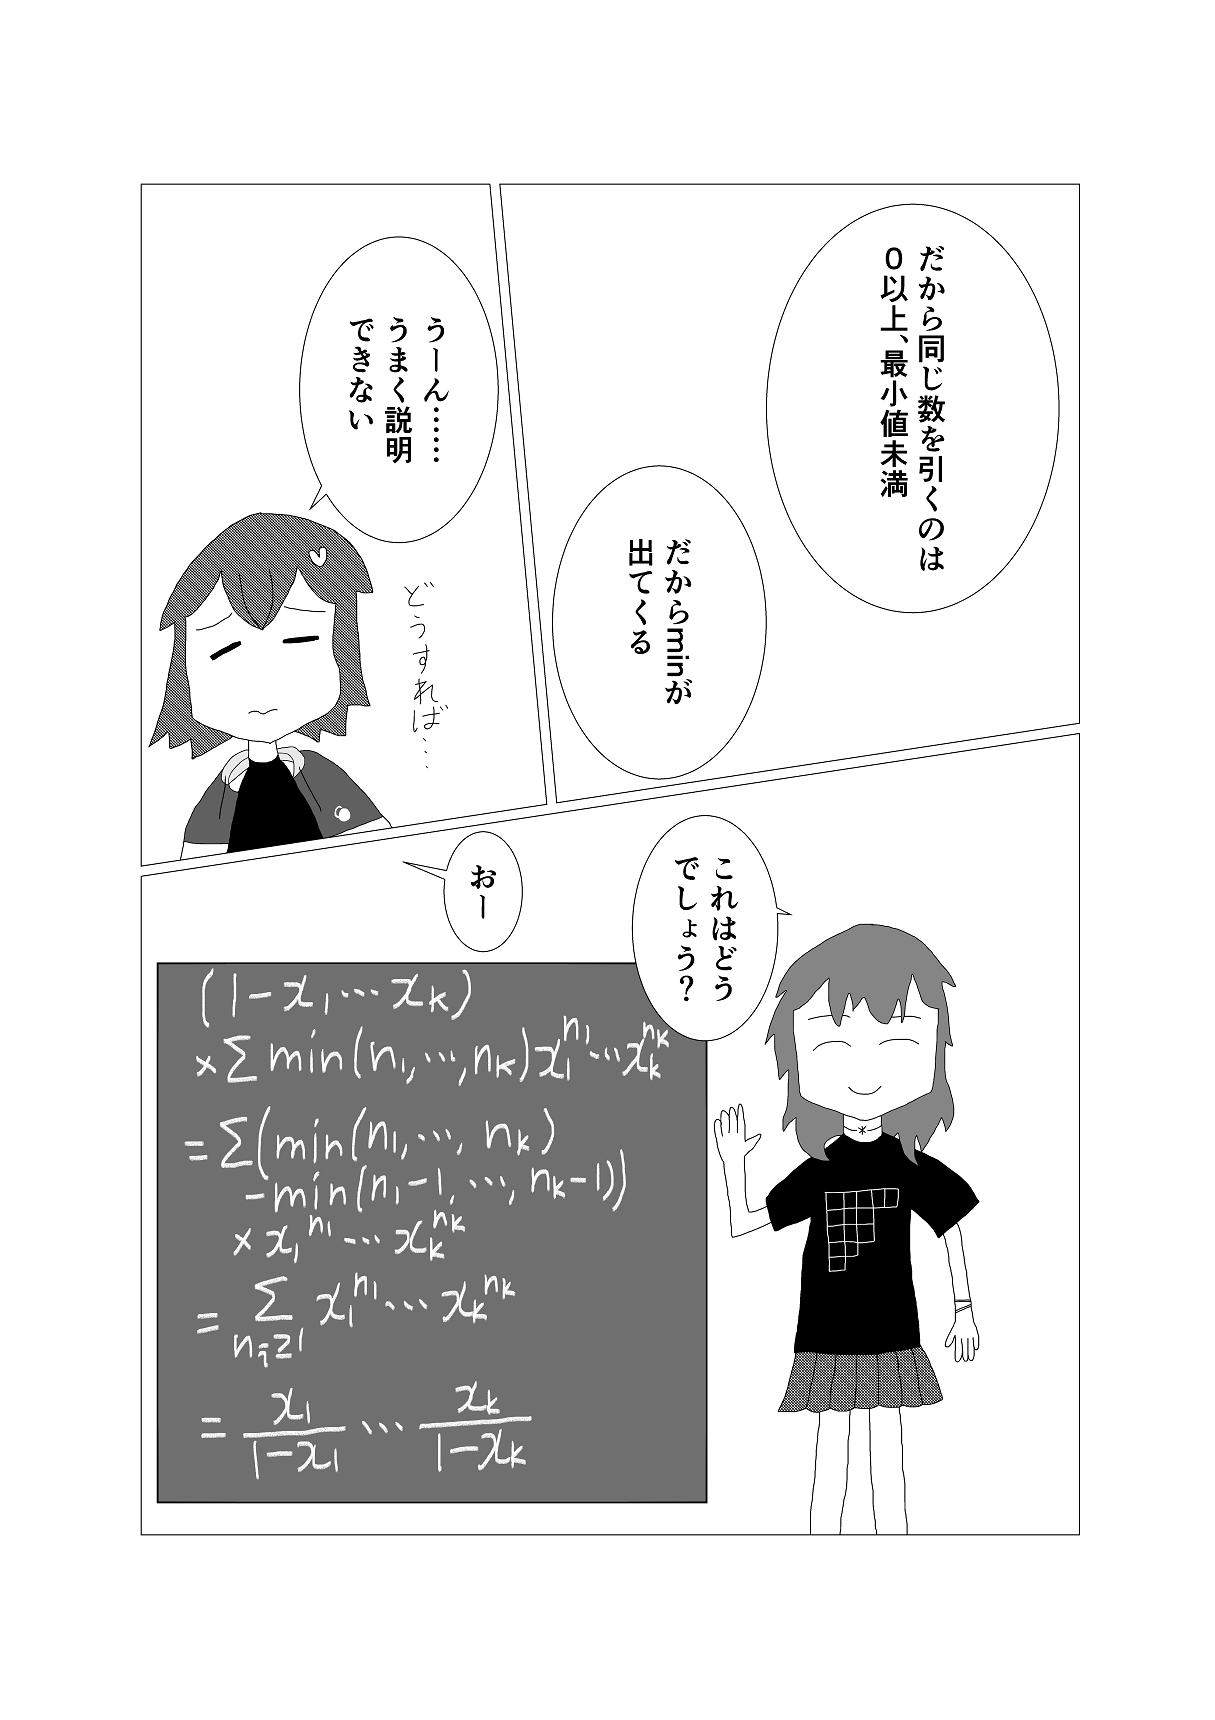 だから同じ数を引くのは
0以上、最小値未満
だからminが
出てくる
うーん……
うまく説明
できない
どうすれば…
これはどう
でしょう?
おー
(1-x₁…x_k)
×Σmin(n₁,…,n_k)x₁^{n₁}…x_k^{n_k}
=Σ(min(n₁,…,n_k)
-min(n₁-1,…,n_k-1))
×x₁^{n₁}…x_k^{n_k}
=Σ_{n_i≥1} x₁^{n₁}…x_k^{n_k}
=\frac{x₁}{1-x₁}…\frac{x_k}{1-x_k}